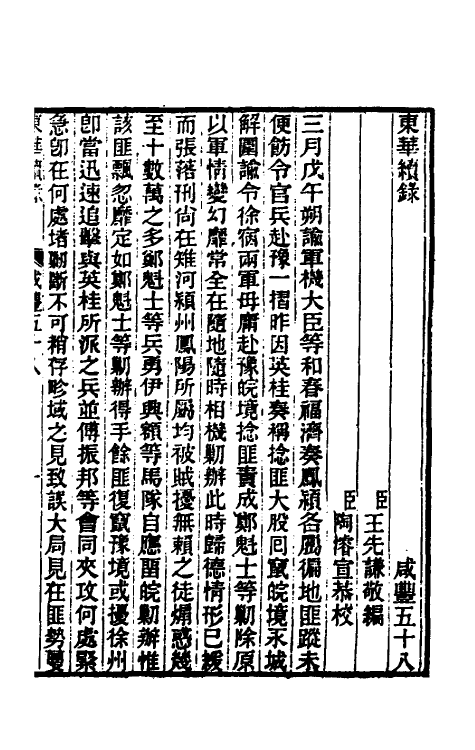 東華續錄
咸豐五十八
臣王先謙敬編
臣陶濬宣恭校
三月戊午朔諭軍機大臣等和春福濟奏鳳潁各屬徧地匪蹤未
便飭令官兵赴豫一摺昨因英桂奏稱捻匪大股回竄皖境永城
解圍諭令徐宿兩軍毋庸赴豫皖境捻匪責成鄭魁士等勦除原
以軍情變幻靡常全在隨地隨時相機勦辦此時歸德情形已緩
而張落刑尚在雉河潁州鳳陽所屬均被賊擾無賴之徒煽惑幾
至十數萬之多鄭魁士等兵勇伊興額等馬隊自應留皖勦辦惟
該匪飄忽靡定如鄭魁士等勦辦得手餘匪復竄豫境或擾徐州
卽當迅速追擊與英桂所派之兵並傅振邦等會同夾攻何處緊
急卽在何處堵勦斷不可稍存畛域之見致誤大局見在匪勢蔓
東華續錄
咸豐五十八
一